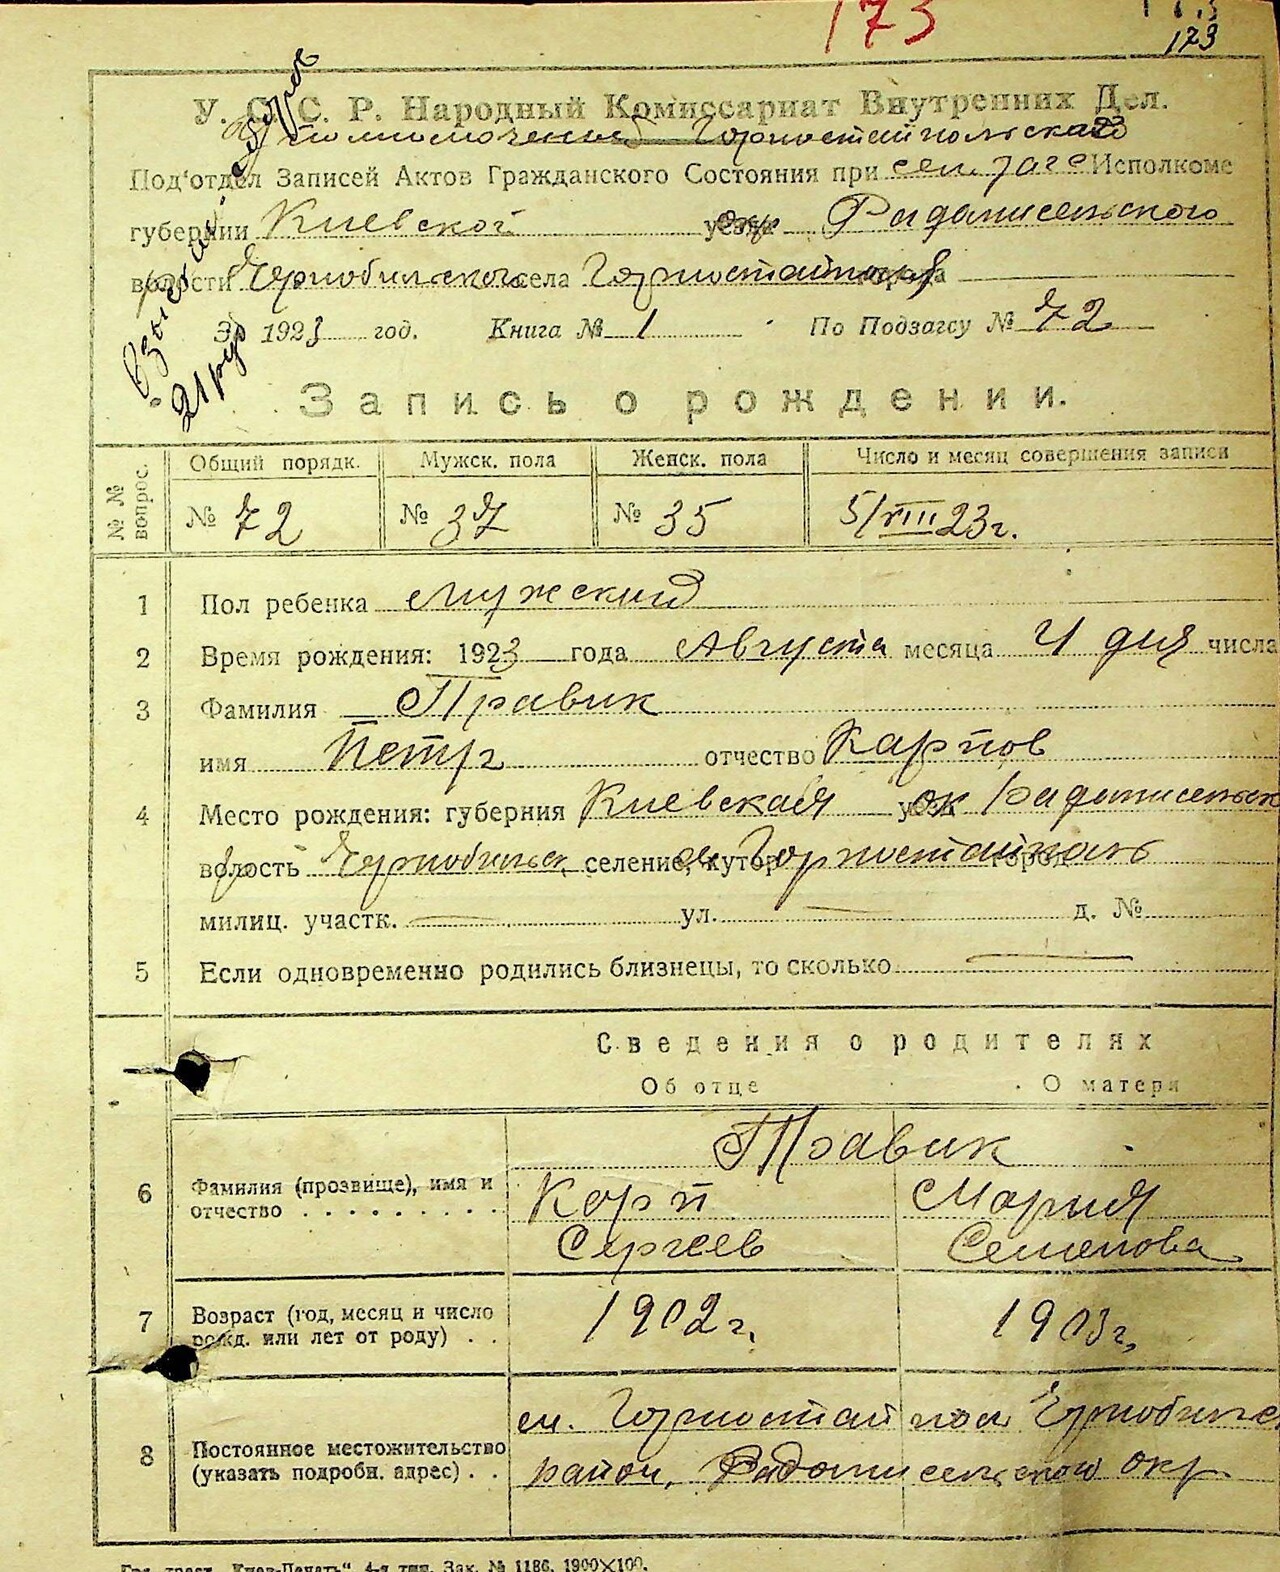 173
173
У. С. С. Р. Народный Комиссариат Внутренних Дел.
Горностайпольская
Под'отдел Записей Актов Гражданского Состояния при сел. загс Исполкоме
губернии Киевской уезда Радомисельского
волости Чернобильского села Горностайполя города
За 1923 год. Книга № 1 По Подзагсу № 72
21 руб
Запись о рождении.
№ № вопрос. Общий порядк. Мужск. пола Женск. пола Число и месяц совершения записи
№ 72 № 37 № 35 5/VIII 23г.
1 Пол ребенка мужский
2 Время рождения: 1923 года Августа месяца 4 дня числа
3 Фамилия Правик
имя Петр отчество Карпов
4 Место рождения: губерния Киевская уезд ок Радомисельск
волость Чернобильск. селение, хутор м. Горностайполь город
милиц. участк. — ул. — д. №
5 Если одновременно родились близнецы, то сколько —
Сведения о родителях
Об отце О матери
Правик
6 Фамилия (прозвище), имя и отчество Карп Мария
Сергеев Семенова
7 Возраст (год, месяц и число рожд. или лет от роду) 1902 г. 1903 г.
8 Постоянное местожительство (указать подробн. адрес) м. Горностайпол Чернобильс
район, Радомисельского окр.
Гос. трест „Киев-Печать“ 4-я тип. Зак. № 1186. 1900×100.